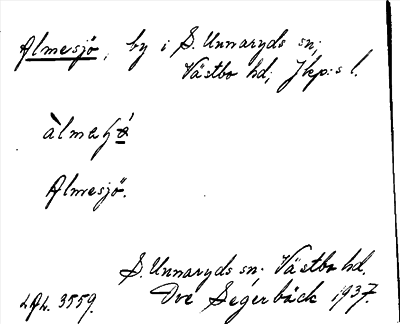 Almesjö, by i S. Unnaryds sn,
Västbo hd, Jkp:s l.
Almesjö.
S. Unnaryds sn; Västbo hd.
LAL. 3559. Ove Segerbäck 1937.